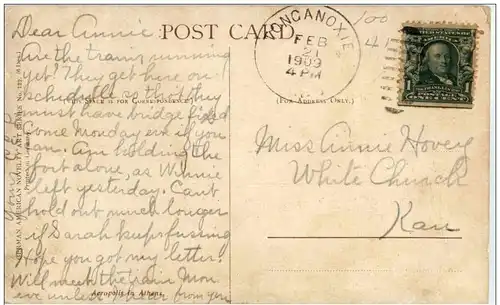 POST CARD
TONGANOXIE
FEB
21
1909
4 PM
Dear Annie:
Are the trains running
yet? They get here on
schedule so that they
(THIS SPACE IS FOR CORRESPONDENCE.)
must have bridge fixed
Come Monday eve if you
can. Am holding the
fort alone, as Winnie
left yesterday. Can't
hold out much longer
if Sarah keeps fussing
Hope you got my letter.
Will meet the train Mon
eve unless I hear from you
Acropolis in Athens.
(FOR ADDRESS ONLY.)
Miss Annie Hovey
White Church
Kan
100
ONE CENT